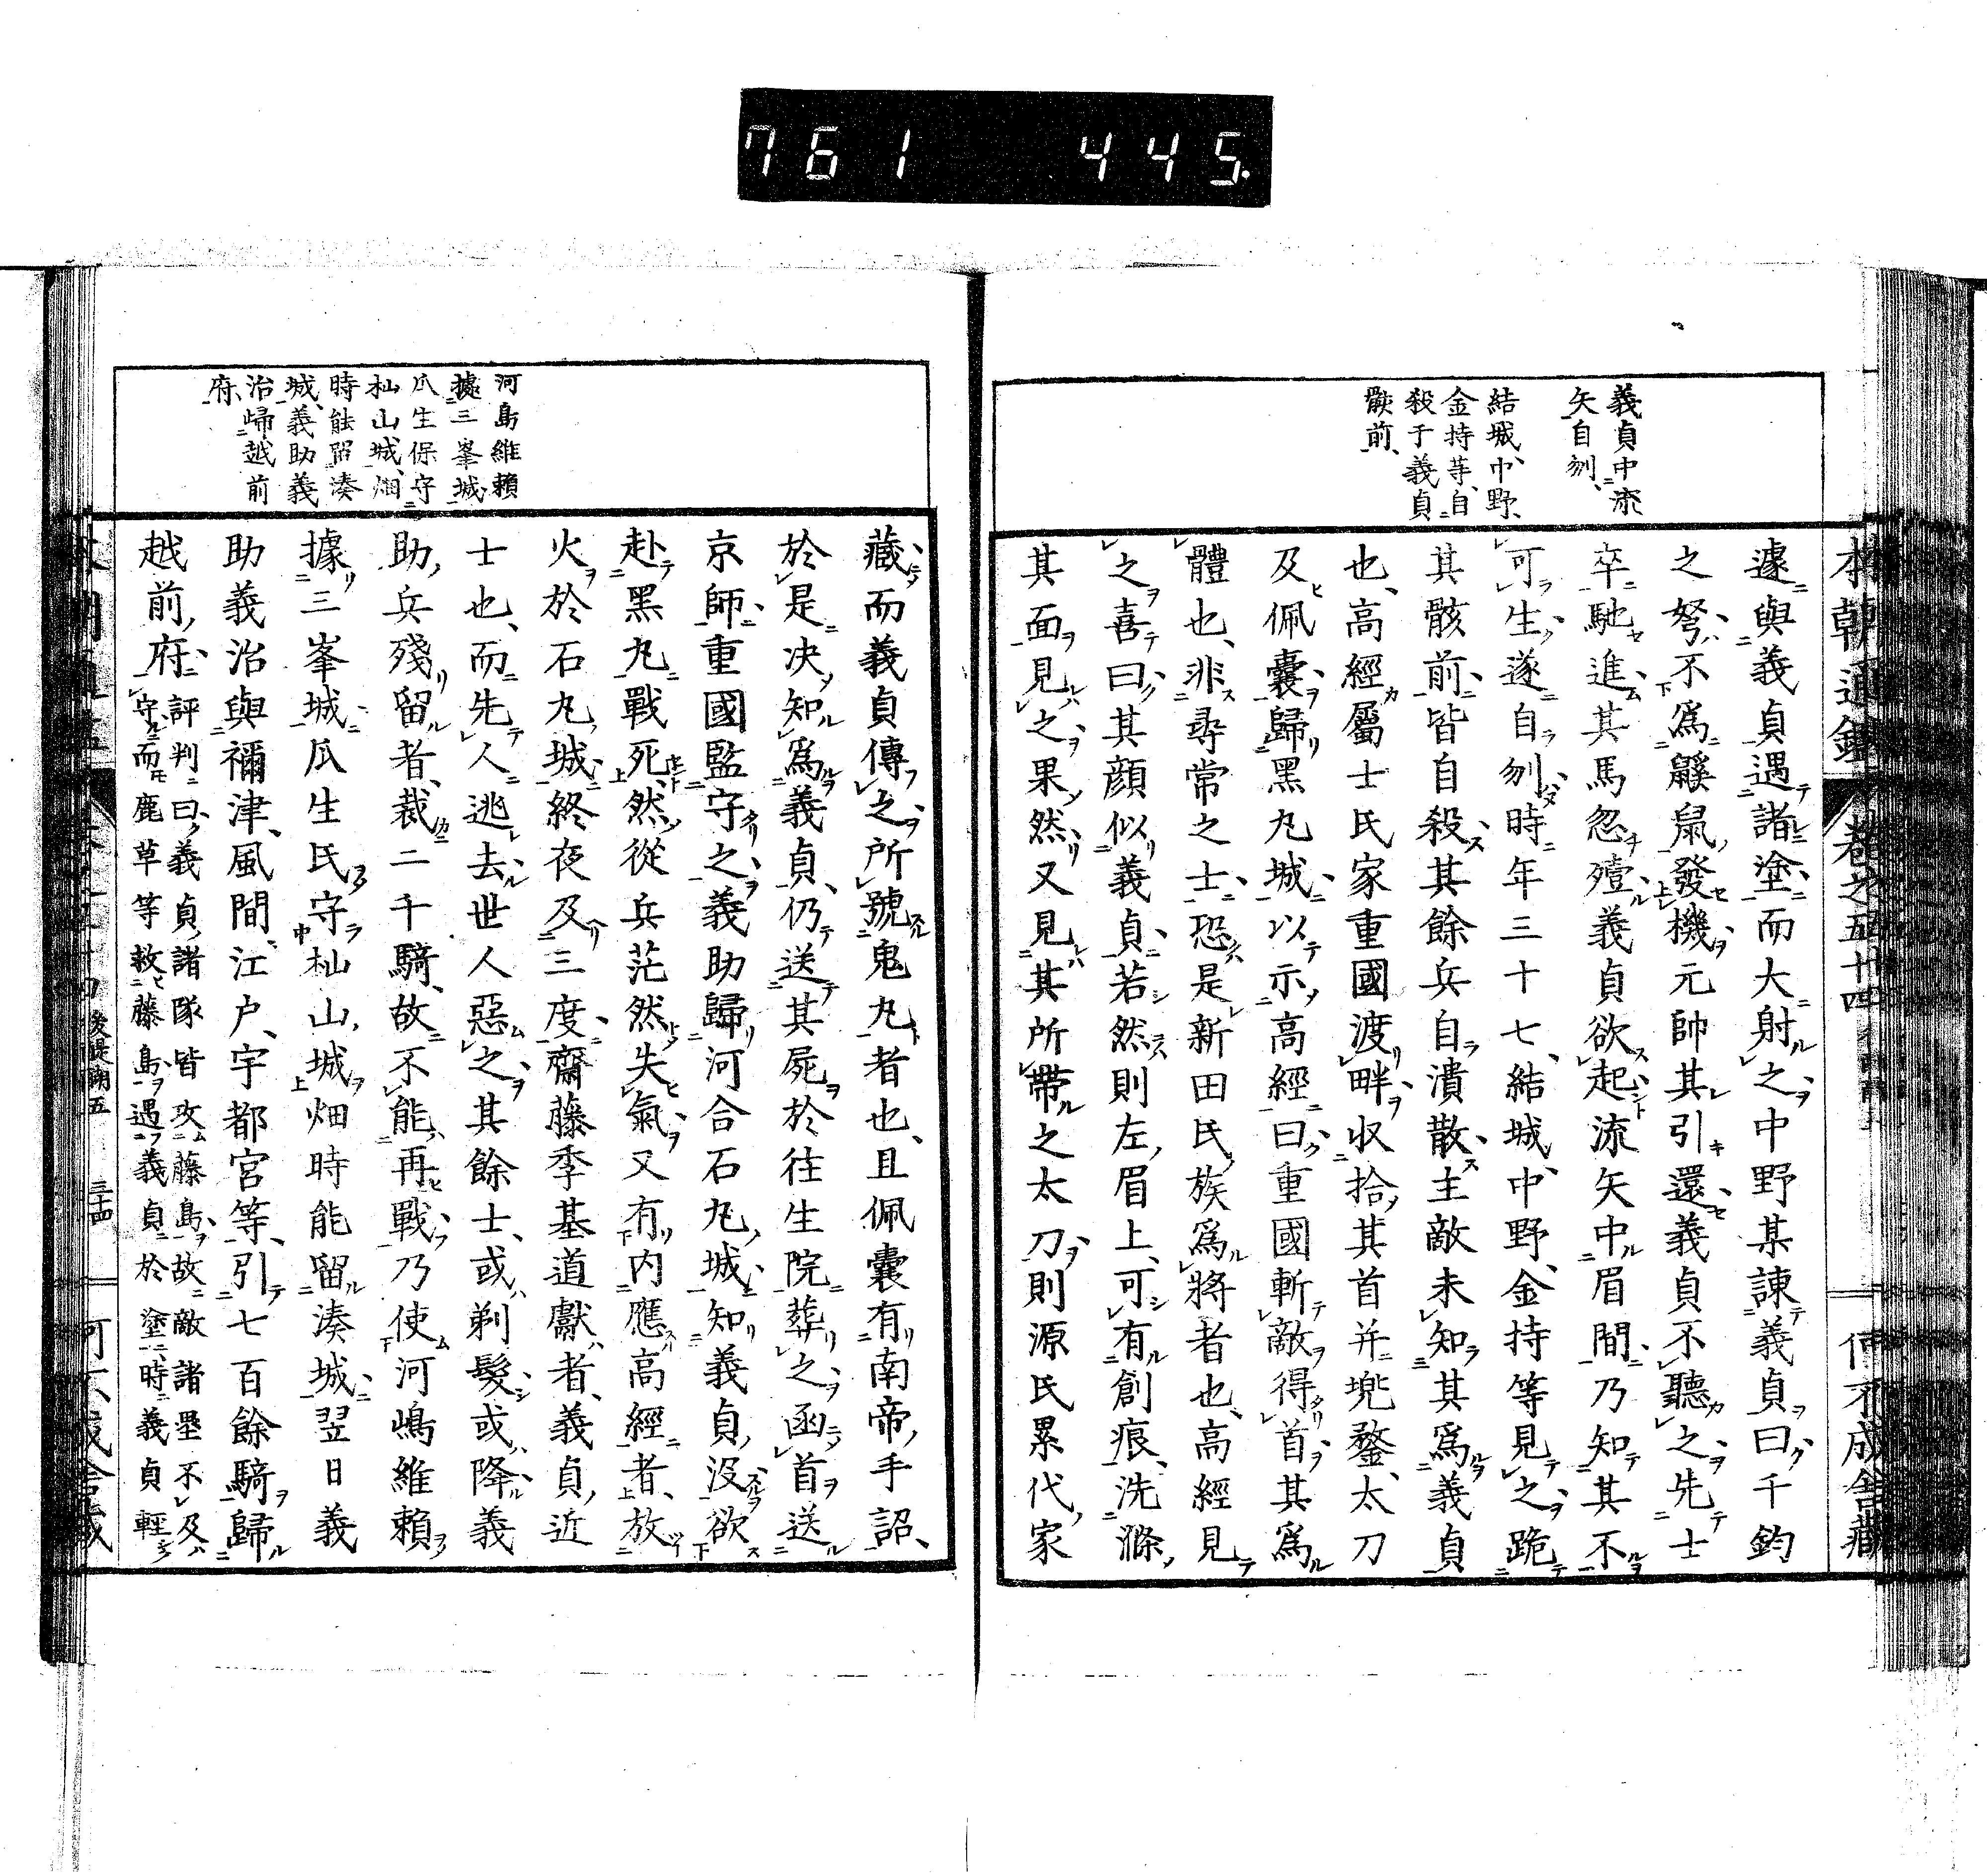 761 445.
本朝通鑑 卷之五十四
何不成舍藏
義貞中流
矢自刎、
結城、中野、
金持等、自
殺于義貞
骸前、
遽與義貞遇諸塗而大射之中野某諫義貞曰千鈞
之弩不爲鼷鼠發機元帥其引還義貞不聽之先士
卒馳進其馬忽殪義貞欲起流矢中眉間乃知其不
可生遂自刎時年三十七、結城、中野、金持等見之跪
其骸前皆自殺其餘兵自潰散主敵未知其爲義貞
也、高經屬士氏家重國渡畔収拾其首并兠鍪、太刀
及佩囊歸黑丸城以示高經曰重國斬敵得首其爲
體也、非尋常之士恐是新田氏族爲將者也、高經見
之喜曰其顏似義貞若然則左眉上、可有創痕、洗滌
其面見之果然又見其所帶之太刀則源氏累代家
河島維賴
據三峯城、
瓜生保守
杣山城、畑
時能留湊
城、義助義
治歸越前
府、
藏而義貞傳之所號鬼丸者也、且佩囊有南帝手詔、
於是決知爲義貞、仍送其屍於往生院葬之函首送
京師重國監守之義助歸河合石丸城知義貞沒欲
赴黑丸戰死然從兵茫然失氣又有內應高經者、放
火於石丸城終夜及三度齋藤季基道獻者、義貞近
士也、而先人逃去世人惡之其餘士、或剃髮或降義
助兵殘留者、裁二千騎、故不能再戰乃使河嶋維賴
據三峯城瓜生氏守杣山城畑時能留湊城翌日義
助義治與禰津、風間、江戶、宇都宮等、引七百餘騎歸
越前府 評判曰義貞諸隊皆攻藤島故敵諸壘不及
守而鹿草等救藤島遇義貞於塗時義貞輕
後醍醐五 三十四